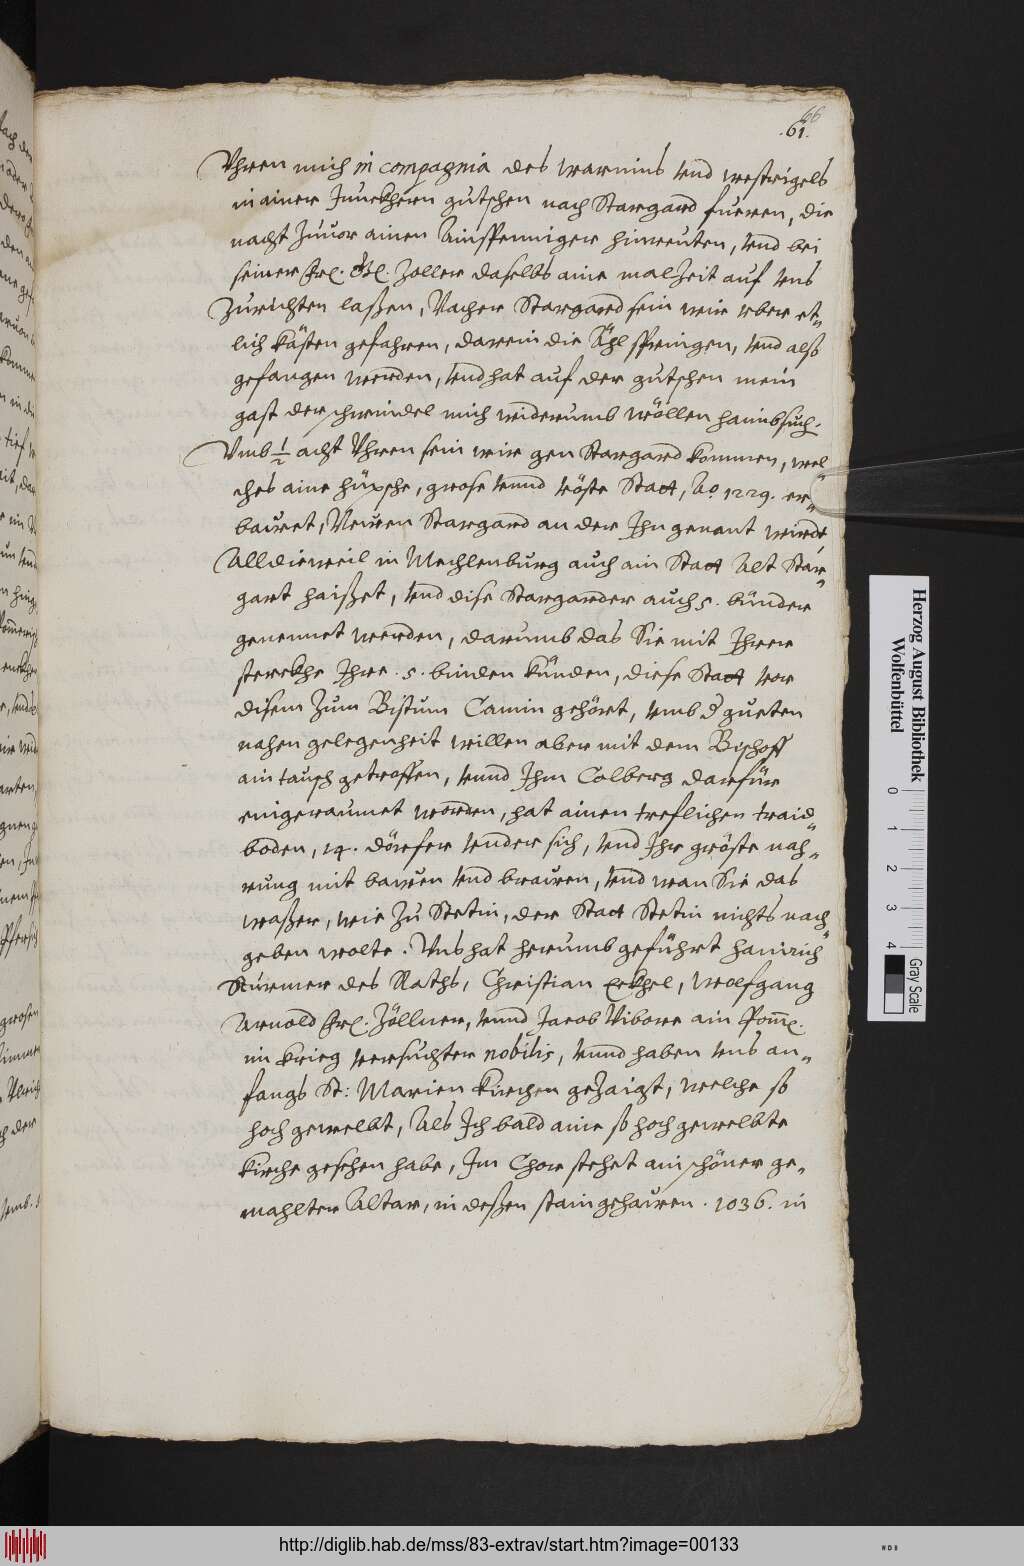 66
.61.
Uhren mich in compagnia des Warnins vnd Westrigels
in ainer Junckhern gutschen nach Stargard fueren, die
nacht zuuor ainen Ainspenniger hinreuten, vnd bei
seiner frl. Gl. Zoller daselbs aine malzeit auf vns
zurichten laßen, Nacher Stargard sein wir vber et„
lich kästen gefahren, darein die Ahl springen, vnd alß
gefangen werden, vnd hat auf der gutschen mein
gast der schwindel mich widerumb wöllen haimbsuch.
Vmb ½ acht Uhren sein wir gen Stargard kommen, wel„
ches aine hüpsche, grose vnnd vöste Statt, Ao 1229. er„
bauret, Neuen Stargard an der Ihn genant wirdt,
Alldieweil in Mechlenburg auch ain Statt Alt Star„
gart haißet, vnd dise Stargarder auch 5. bünder
genennet werden, darumb das Sie mit Ihrer
sterckhe Ihre .5. binden künden, diese Statt vor
disem zum Bistum Camin gehört, vmb d gueten
nahen gelegenheit willen aber mit dem Bischoff
ain tausch getroffen, vnnd Ihm Colberg darfür
eingeraumet worden, hat ainen treflichen traid„
boden, 14. dörfer vnder sich, vnd Ihr gröste nah„
rung mit bauren vnd brauren, vnd wan Sie das
waßer, wie zu Stetin, der Statt Stetin nichts nach„
geben wolte. Vns hat herumb geführt Hainrich
Stürmer des Raths, Christian Erkhel, Wolfgang
Arnold frl. Zöllner, vnnd Jacob Vibore ain Pom̃e.
im krieg versuchter nobilis, vnnd haben vns an„
fangs St: Marien kirchen gezaigt, welche so
hoch gewelbt, Als Ich bald aine so hoch gewelbte
kirche gesehen habe, Im Chor stehet ain schöner ge„
mahlter Altar, in deßen stain gehauren . 1036. in
Herzog August Bibliothek
Wolfenbüttel
0 1 2 3 4
Gray Scale
http://diglib.hab.de/mss/83-extrav/start.htm?image=00133
WDB